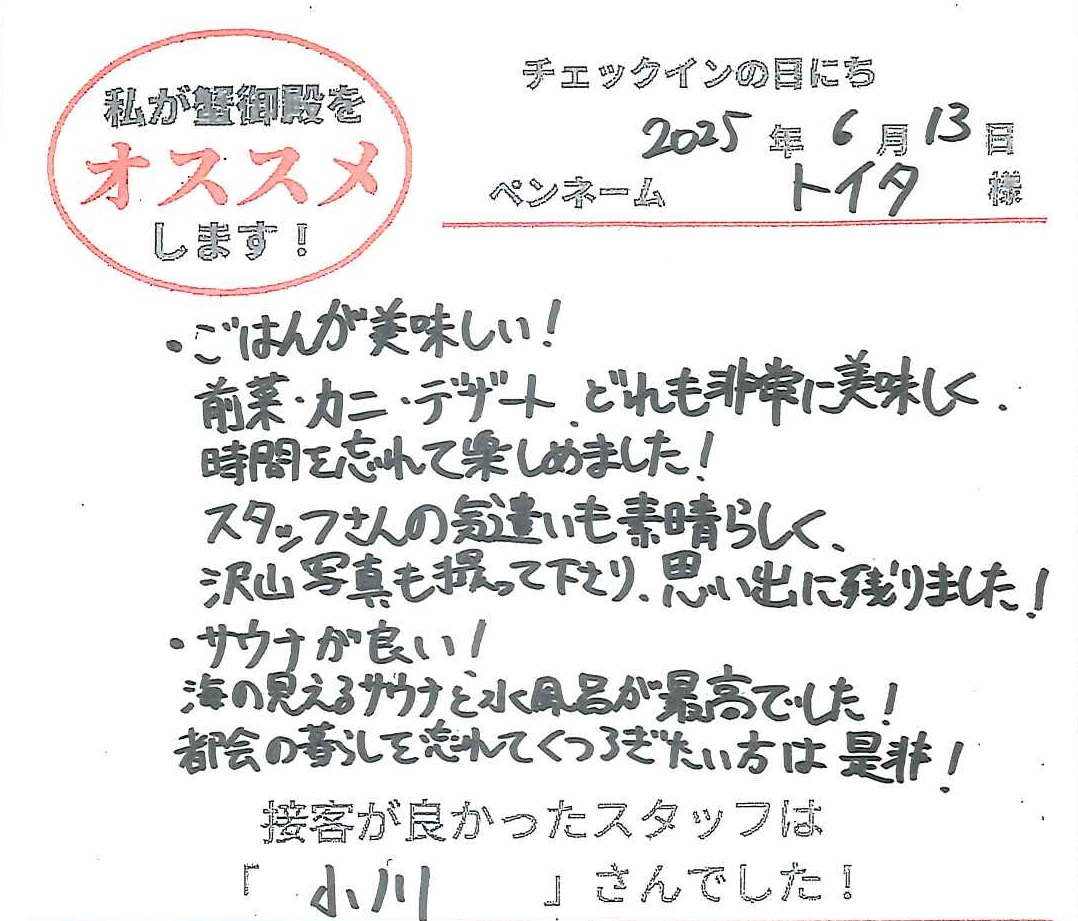 私が蟹御殿を
オススメ
します！
チェックインの日にち
2025年6月13日
ペンネーム トイタ 様
・ごはんが美味しい！
前菜・カニ・デザート、どれも非常に美味しく、
時間を忘れて楽しめました！
スタッフさんの気遣いも素晴らしく、
沢山写真も撮って下さり、思い出に残りました！
・サウナが良い！
海の見えるサウナと、水風呂が最高でした！
都会の暮らしを忘れてくつろぎたい方は是非！
接客が良かったスタッフは
「 小川 」さんでした！